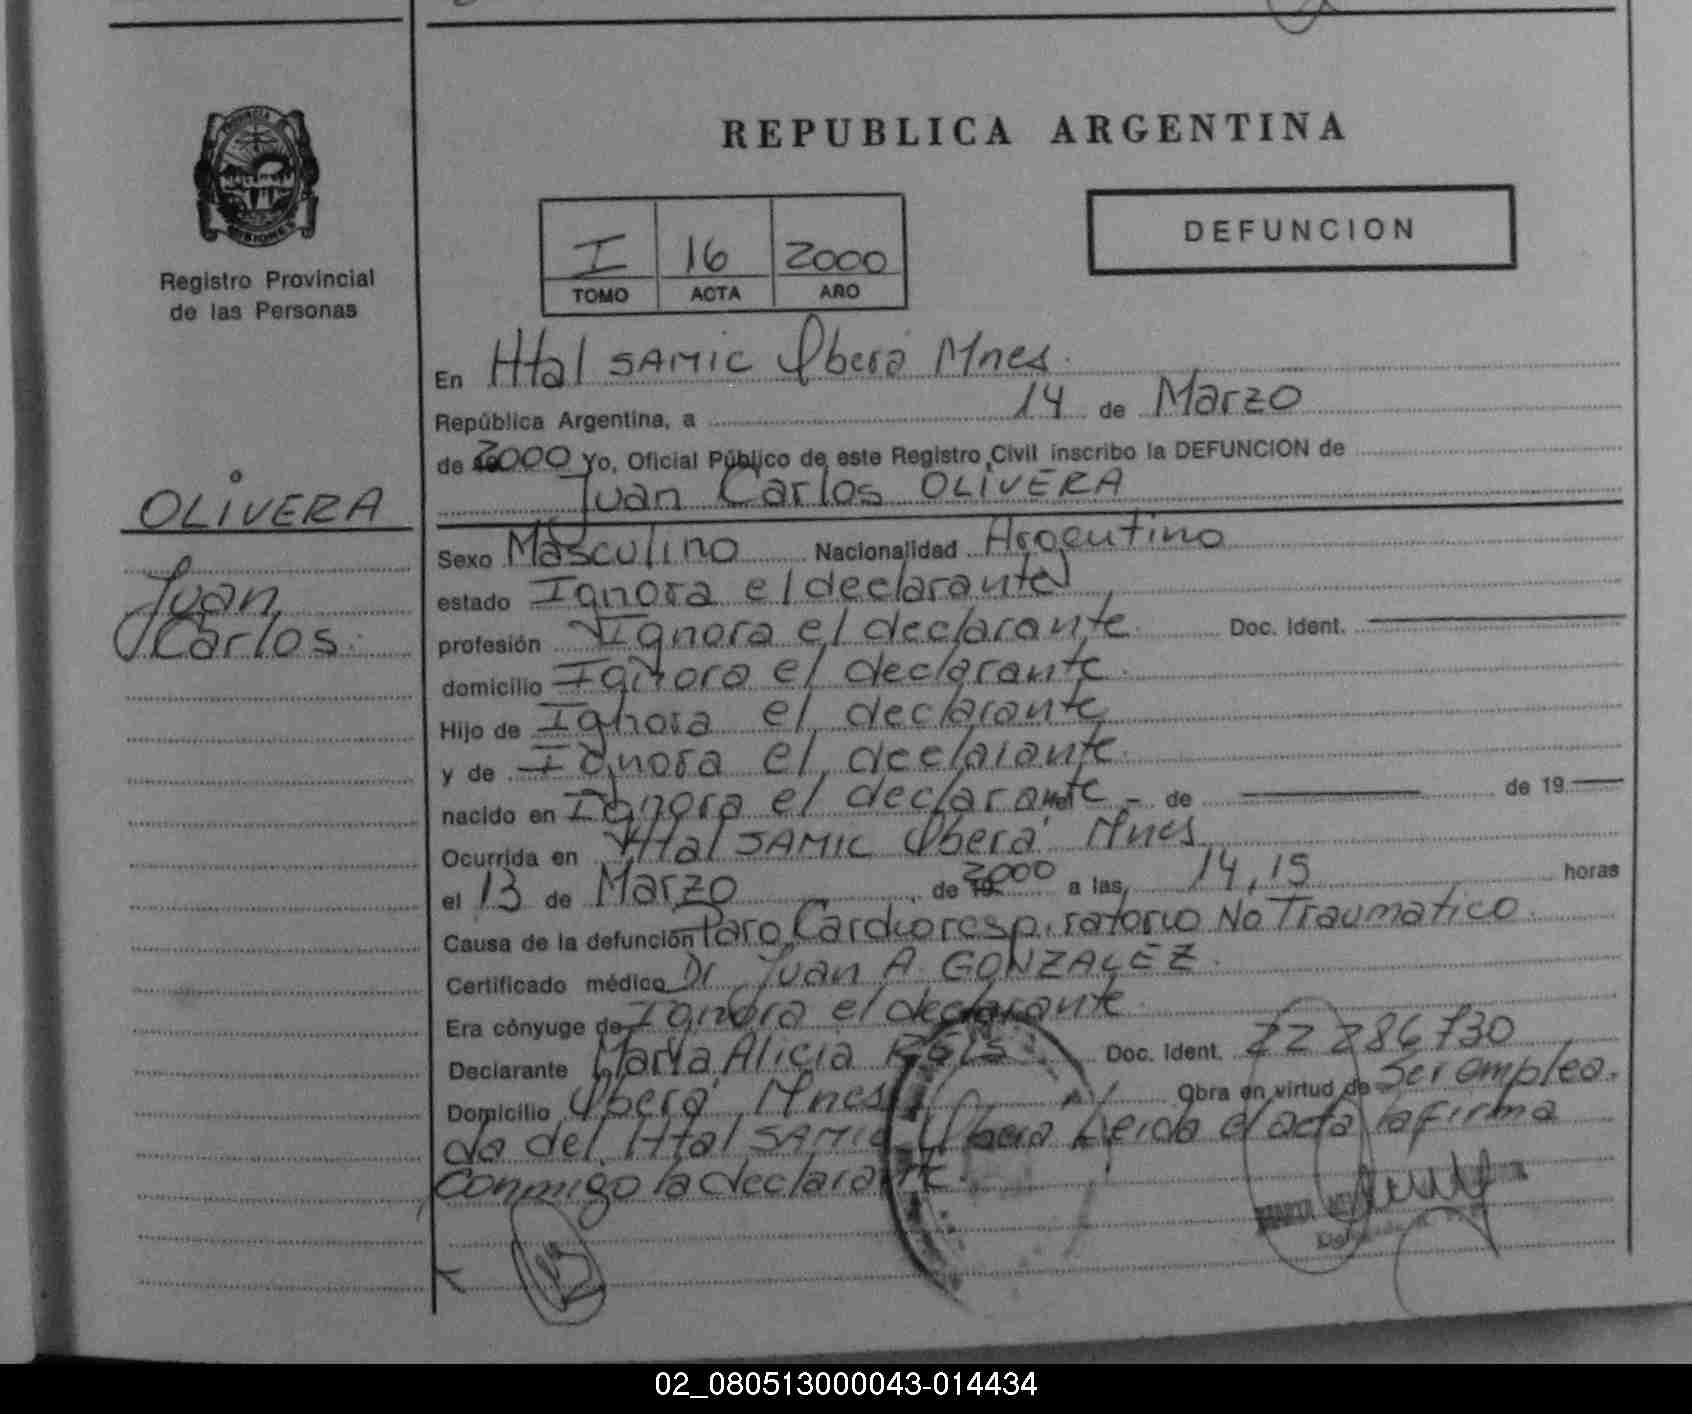 PROVINCIA
MISIONES
Registro Provincial
de las Personas
REPUBLICA ARGENTINA
I 16 2000
TOMO ACTA AÑO
DEFUNCION
En Htal SAMIC Oberá Mnes.
República Argentina, a 14 de Marzo
de 2000 Yo, Oficial Público de este Registro Civil inscribo la DEFUNCION de
Juan Carlos OLIVERA
OLIVERA
Juan
Carlos.
Sexo Masculino Nacionalidad Argentino
estado Ignora el declarante
profesión Ignora el declarante. Doc. Ident.
domicilio Ignora el declarante.
Hijo de Ignora el declarante
y de Ignora el declarante.
nacido en Ignora el declarante - de de 19
Ocurrida en Htal SAMIC Oberá Mnes
el 13 de Marzo de 2000 a las 14,15 horas
Causa de la defunción Paro Cardiorespiratorio No Traumatico.
Certificado médico Dr Juan A. GONZALEZ.
Era cónyuge de Ignora el declarante.
Declarante María Alicia Doc. Ident. 22 286730
Domicilio Oberá Mnes Obra en virtud de Ser emplea-
da del Htal SAMIC Oberá Leida el acta la firma
conmigo la declarante.
02_080513000043-014434